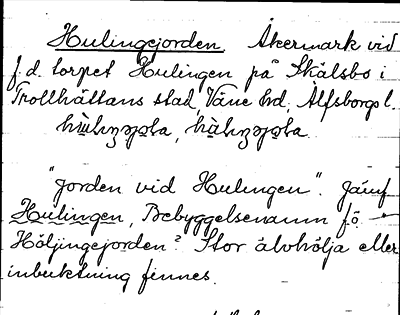 Hulingejorden Åkermark vid
f.d. torpet Hulingen på Skålsbo i
Trollhättans stad, Väne hd, Älfsborgs l.
"Jorden vid Hulingen". Jämf
Hulingen, Bebyggelsenamn fö
Höljingejorden? Stor älvhölja eller
inbuktning finnes.